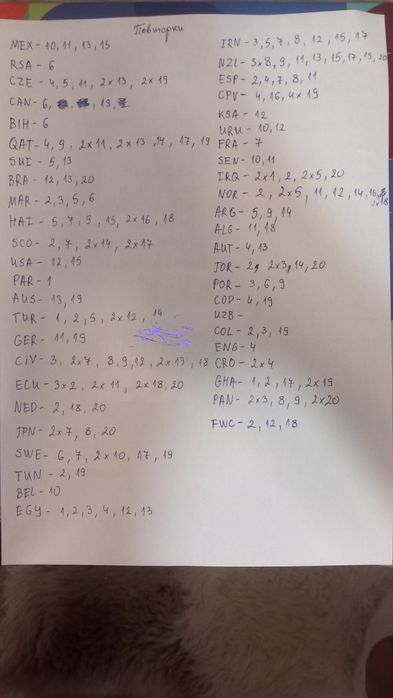 Повторки
MEX - 10, 11, 13, 15
RSA - 6
CZE - 4, 5, 11, 2x13, 2x19
CAN - 6, 19,
BIH - 6
QAT - 4, 9, 2x11, 2x13, 14, 17, 19
SUI - 5, 13
BRA - 12, 13, 20
MAR - 2, 3, 5, 6
HAI - 5, 7, 9, 15, 2x16, 18
SCO - 2, 7, 2x14, 2x17
USA - 12, 15
PAR - 1
AUS - 13, 19
TUR - 1, 2, 5, 2x12, 14
GER - 11, 19
CIV - 3, 2x7, 8, 9, 12, 2x13, 18
ECU - 3x2, 2x11, 2x18, 20
NED - 2, 18, 20
JPN - 2x7, 8, 20
SWE - 6, 7, 2x10, 17, 19
TUN - 2, 19
BEL - 10
EGY - 1, 2, 3, 4, 12, 13
IRN - 3, 5, 7, 8, 12, 15, 17
NZL - 3x8, 9, 11, 13, 15, 17, 19, 20
ESP - 2, 4, 7, 8, 11
CPV - 4, 16, 4x19
KSA - 12
URU - 10, 12
FRA - 7
SEN - 10, 11
IRQ - 2x1, 2, 2x5, 20
NOR - 2, 2x5, 11, 12, 14, 16,
2x18
ARG - 5, 9, 14
ALG - 11, 18
AUT - 4, 13
JOR - 2, 2x3, 14, 20
POR - 3, 6, 9
COD - 4, 19
UZB -
COL - 2, 3, 19
ENG - 4
CRO - 2x4
GHA - 1, 2, 17, 2x19
PAN - 2x3, 8, 9, 2x20
FWC - 2, 12, 18